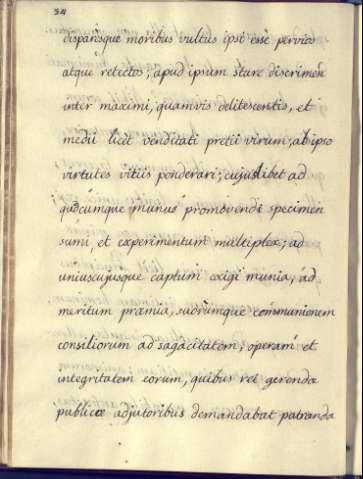 54
disparésque moribus vultus ipsi esse pervios
atque retectos; apud ipsum stare discrimen
inter maximi, quamvis delitescentis, et
medii licet venditati pretii virum; ab ipso
virtutes vitiis ponderari; cujuslibet ad
quodcumque munus promovendi specimen
sumi, et experimentum multiplex; ad
uniuscujusque captum exigi munia, ad
meritum præmia, suorumque communionem
consiliorum ad sagacitatem; operam et
integritatem eorum, quibus rei gerendæ
publicæ adjutoribus demandabat patranda